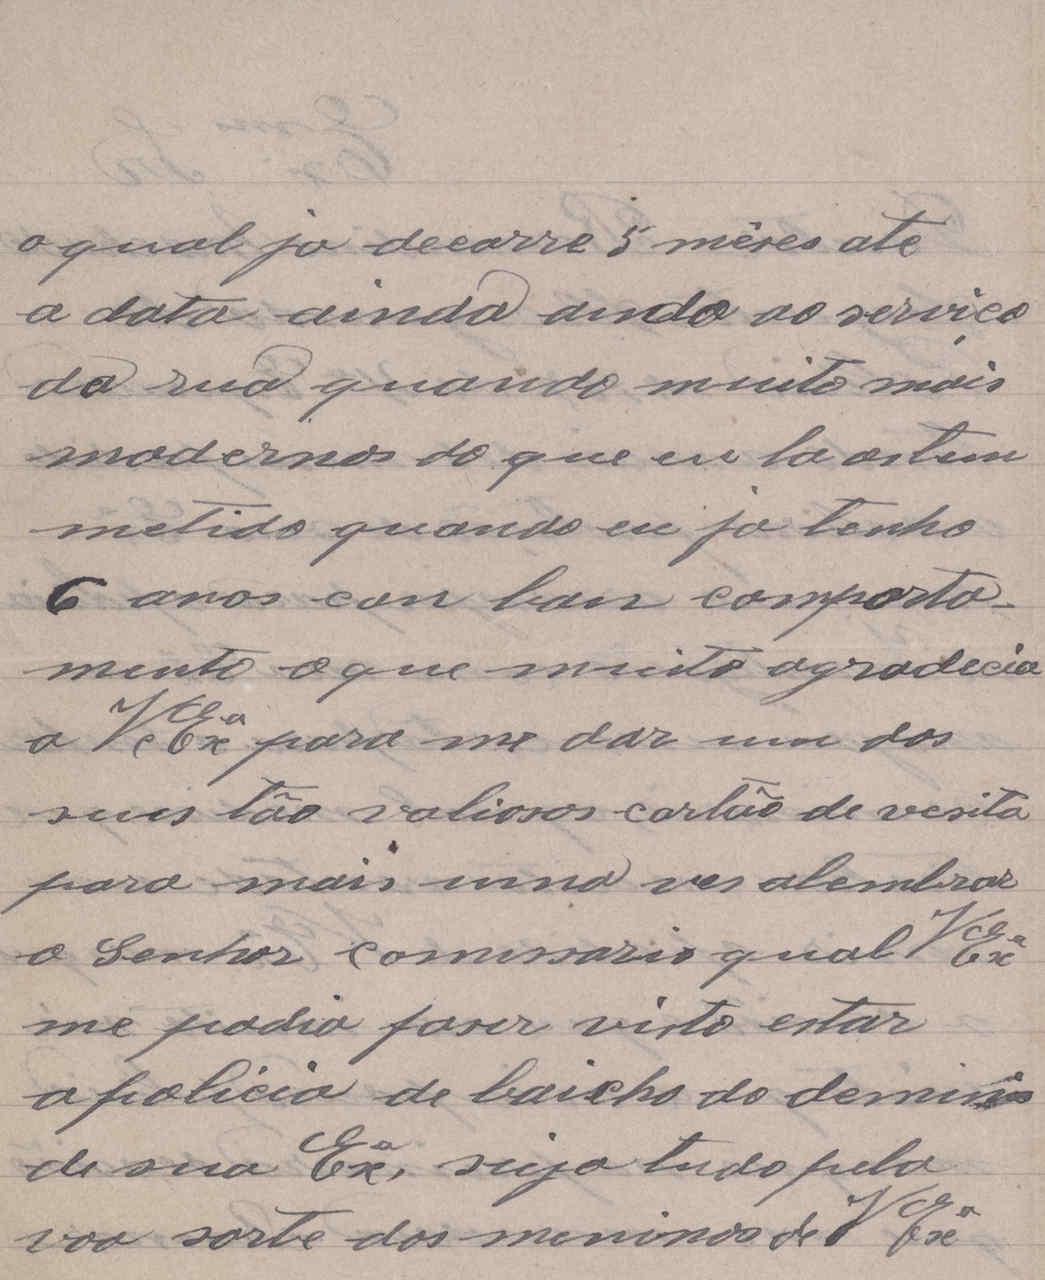 o qual ja decorre 5 mêses ate
a data ainda ando ao serviço
da rua quando muito mais
modernos do que eu la os tem
metido quando eu ja tenho
6 anos con bon comporta-
mento o que muito agradecia
a V Exª para me dar um dos
seus tão valiosos cartão de vesita
para mais uma ves alembrar
o Senhor comissario qual V Exª
me podia faser visto estar
a policia de baicho do
de sua Exª, seija tudo pela
voa sorte dos meninos de V Exª